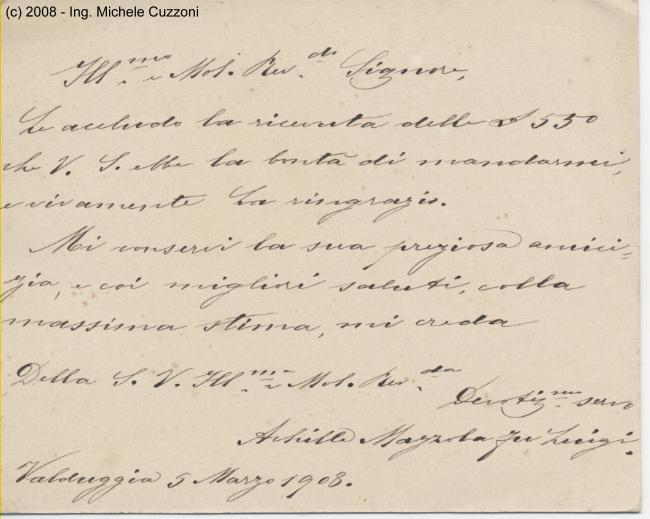 (c) 2008 - Ing. Michele Cuzzoni
Ill.mo e Mol. Rev.do Signore,
Le acchiudo la ricevuta delle £ 550
che V. S. ebbe la bontà di mandarmi,
e vivamente La ringrazio.
Mi conservi la sua preziosa amici=
zia, e coi migliori saluti, colla
massima stima, mi creda
Della S. V. Ill.ma e Mol. Rev.da
Devotis.mo servo
Achille Mazzola fu Luigi.
Valduggia 5 Marzo 1908.